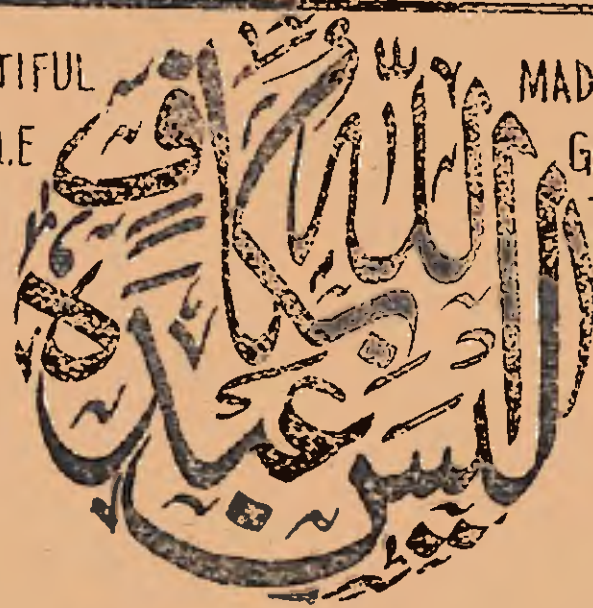 TIFUL MAD
G
أليس الله بكاف عبده